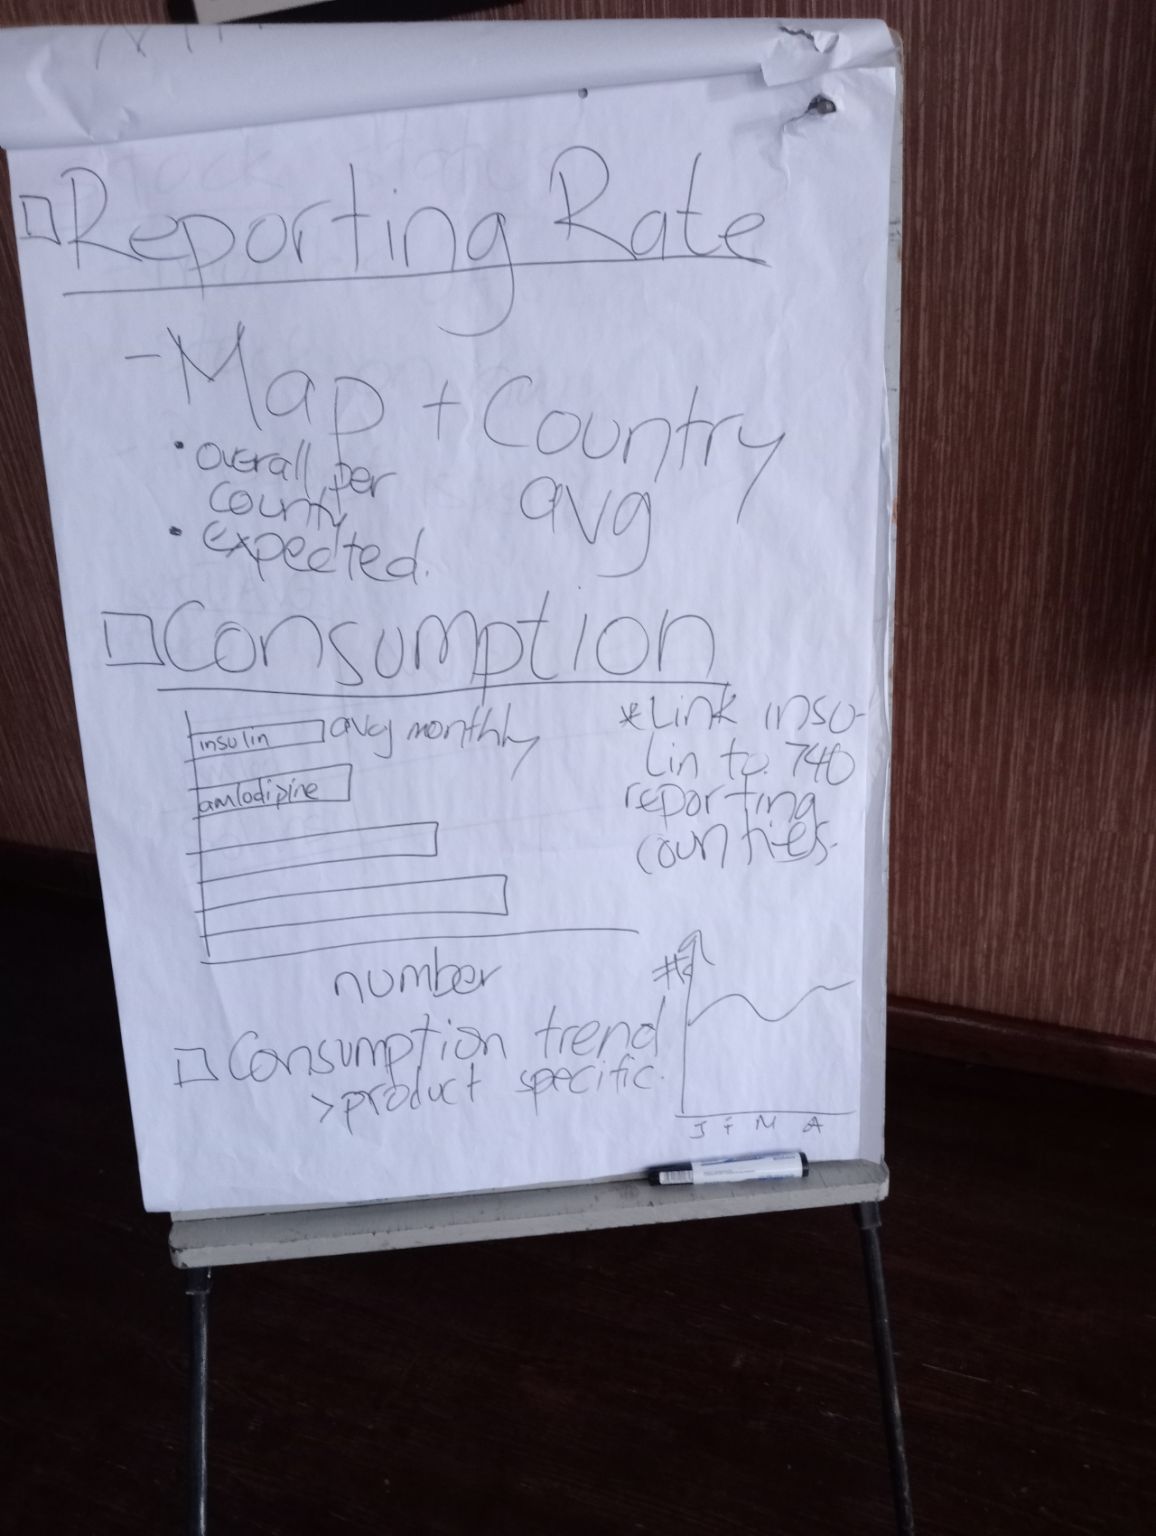 Reporting Rate
- Map + Country
avg
• overall per
county
• expected.
Consumption
insulin avg monthly
amlodipine
number
* Link insu-
lin to 740
reporting
counties.
Consumption trend
> product specific.
#
J F M A